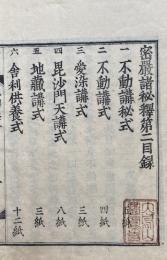 密嚴諸秘釋第二目録
一 不動講秘式
二 不動講式 四紙
三 愛染講式 三紙
四 毘沙門天講式 八紙
五 地藏講式 三紙
六 舎利供養式 十二紙